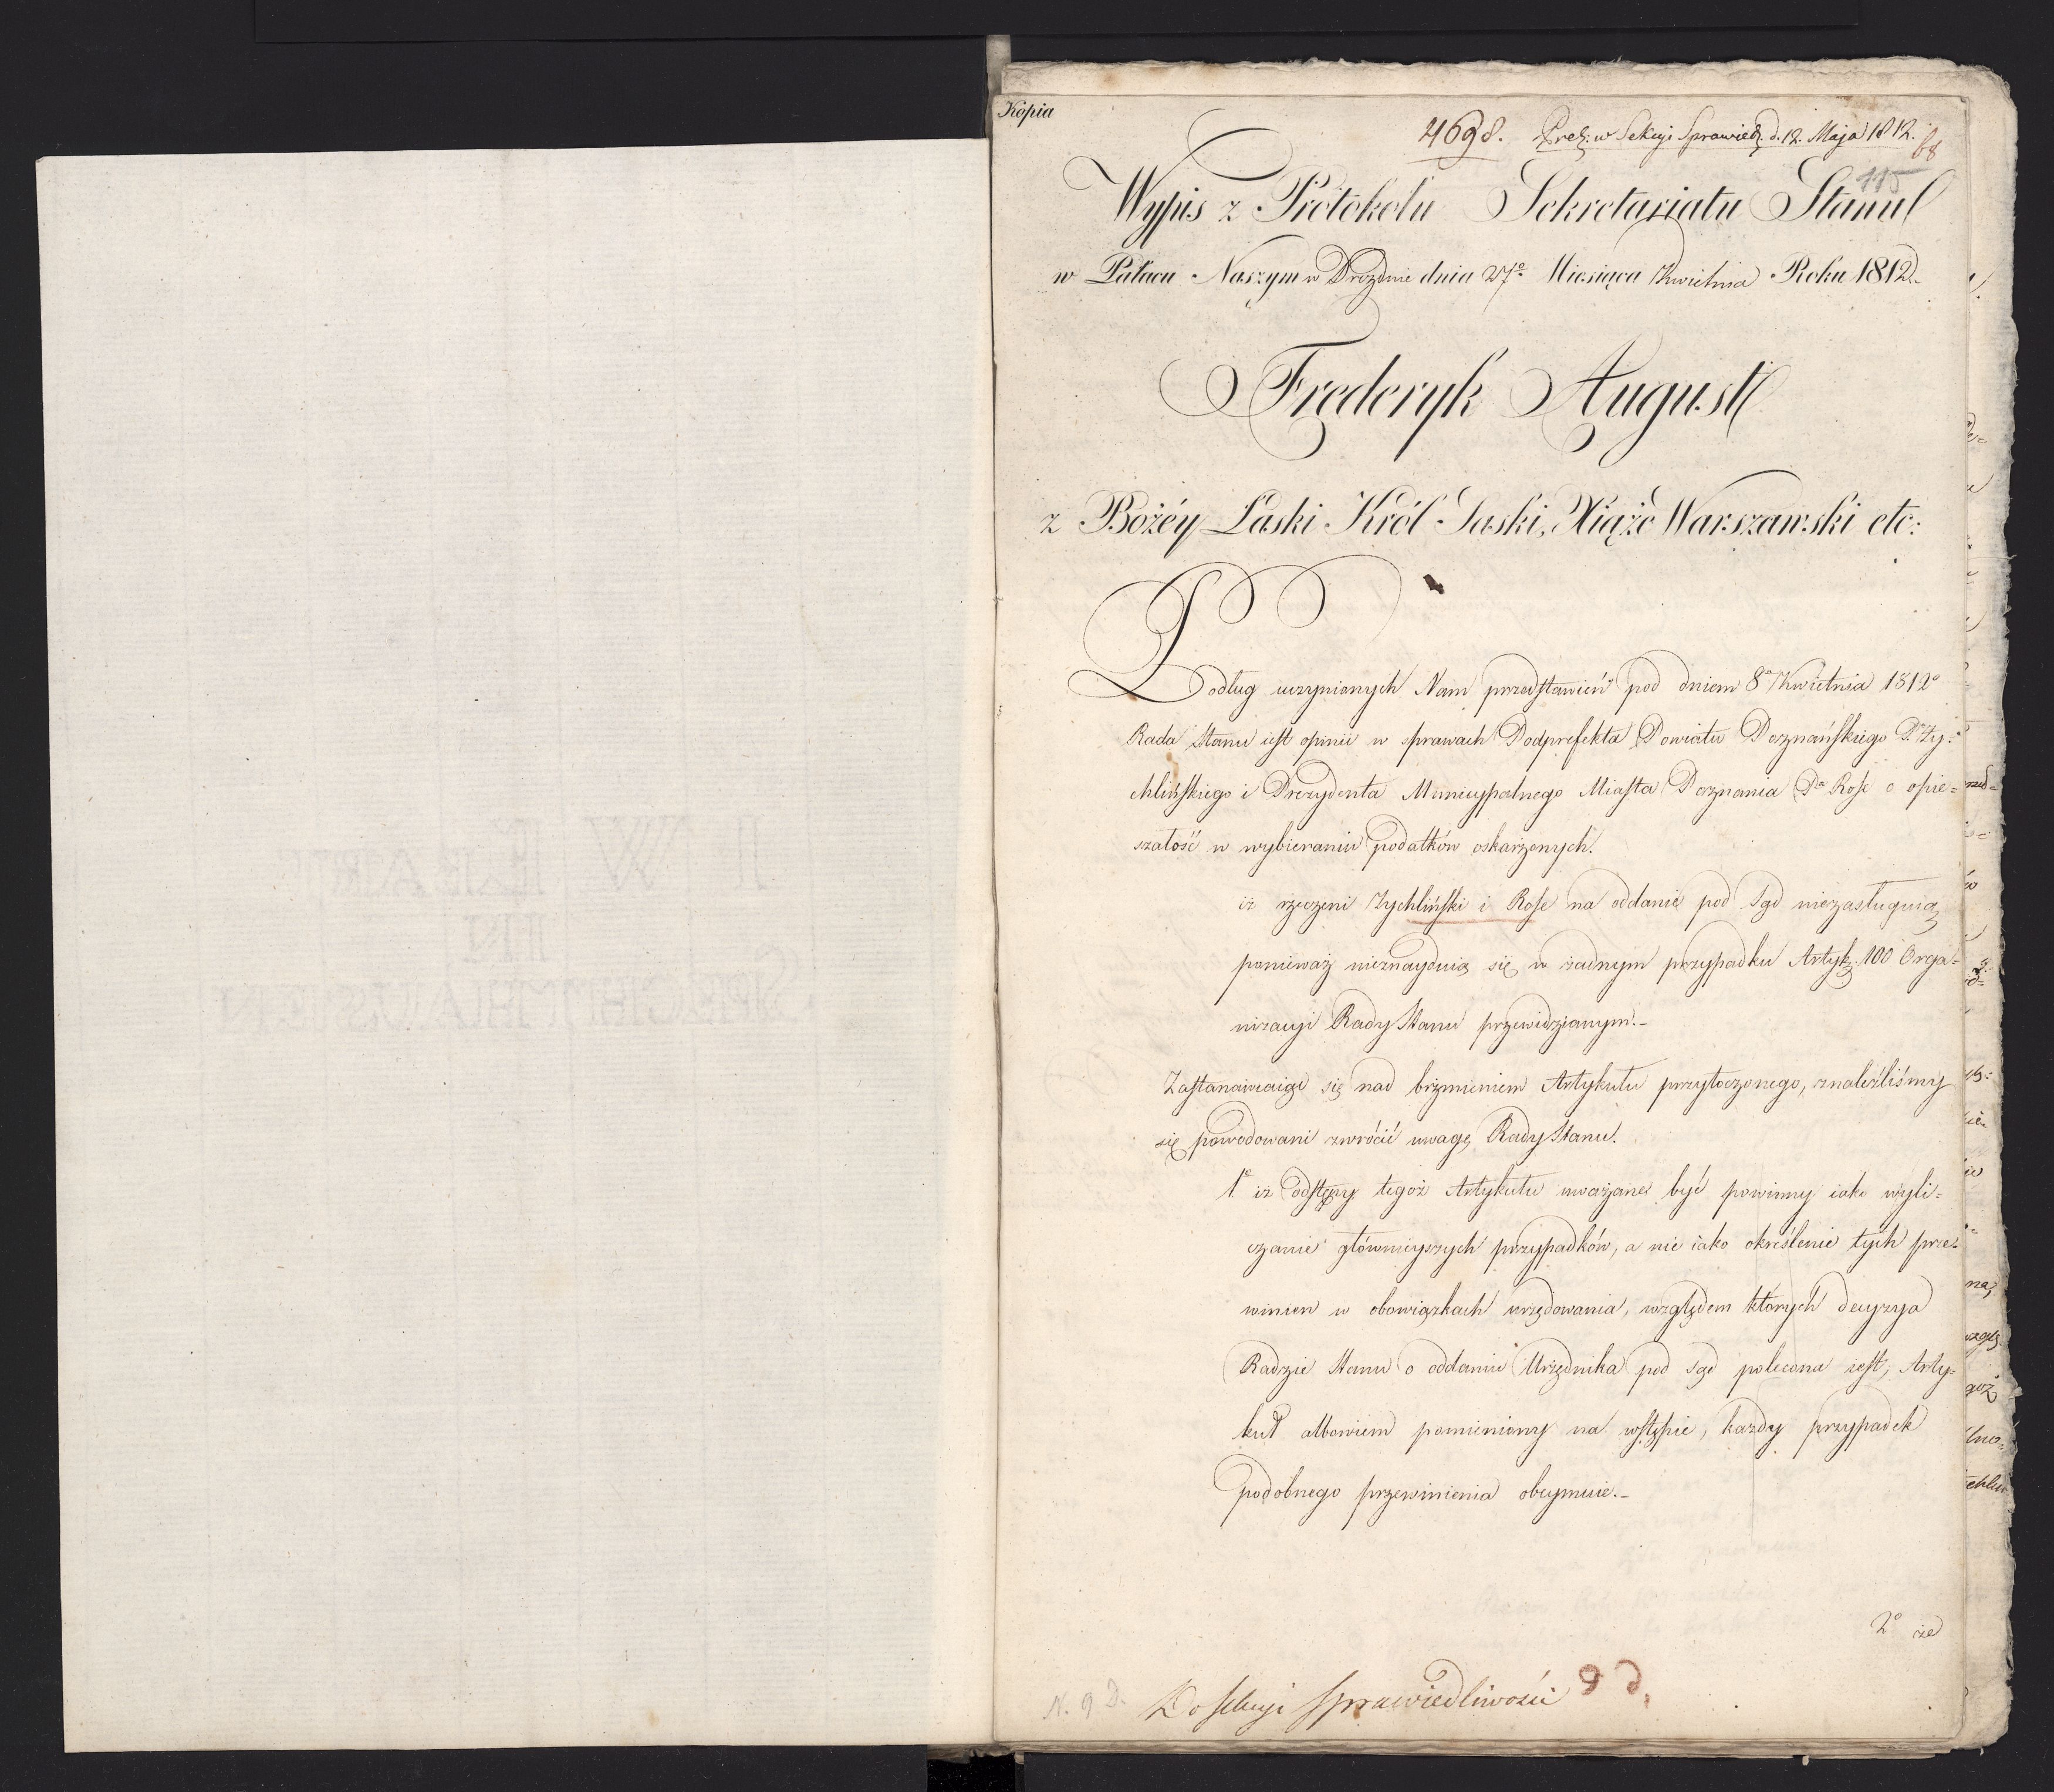 Kopia
4698. Prez: w Sekcyi Sprawied. d. 12. Maja 1812.
68
115
Wypis z Protokołu Sekretariatu Stanu
w Pałacu Naszym w Dreznie dnia 27º Miesiąca Kwietnia Roku 1812.
Frederyk August
z Bożéy Łaski Król Saski, Xiąże Warszawski etc:
Podług uczynionych Nam przedstawień pod dniem 8º Kwietnia 1812º
Rada Stanu iest opinii w sprawach Podprefekta Powiatu Poznańskiego Pª Zy=
chlińskiego i Prezydenta Municypalnego Miasta Poznania Pª Rose o opie=
szałość w wybieraniu podatków oskarżonych.
iż rzeczeni Zychliński i Rose na oddanie pod Sąd niezasługuią
ponieważ nieznayduią się w żadnym przypadku Artyk: 100 Orga=
nizacyi Rady Stanu przewidzianym.-
Zastanawiaiąc się nad brzmieniem Artykułu przytoczonego, znaleźliśmy
się powodowani zwrócić uwagę Rady Stanu.
1º iż odstępy tegoż Artykułu uważane być powinny iako wyli=
czanie głównieyszych przypadków, a nie iako określenie tych prze=
winien w obowiązkach urzędowania, względem których decyzya
Radzie Stanu o oddaniu Urzędnika pod Sąd polecona iest, Arty=
kuł albowiem pomieniony na wstępie, każdy przypadek
podobnego przewinienia obeymuie.-
2º że
N. 9 D. Do Sekcyi Sprawiedliwości 9 D.
I W LEARY
IN
SPECHTHAUSEN